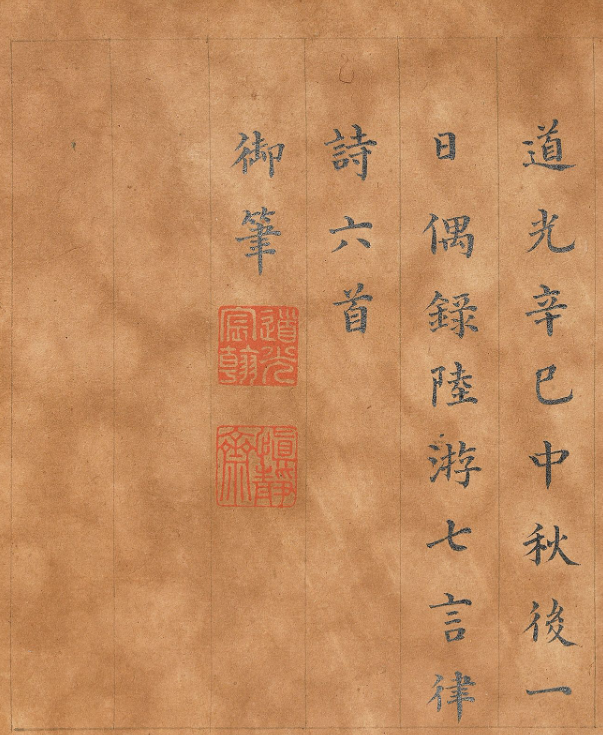 道光辛巳中秋後一
日偶録陸游七言律
詩六首
御筆
道光
宸翰
慎靜
齋